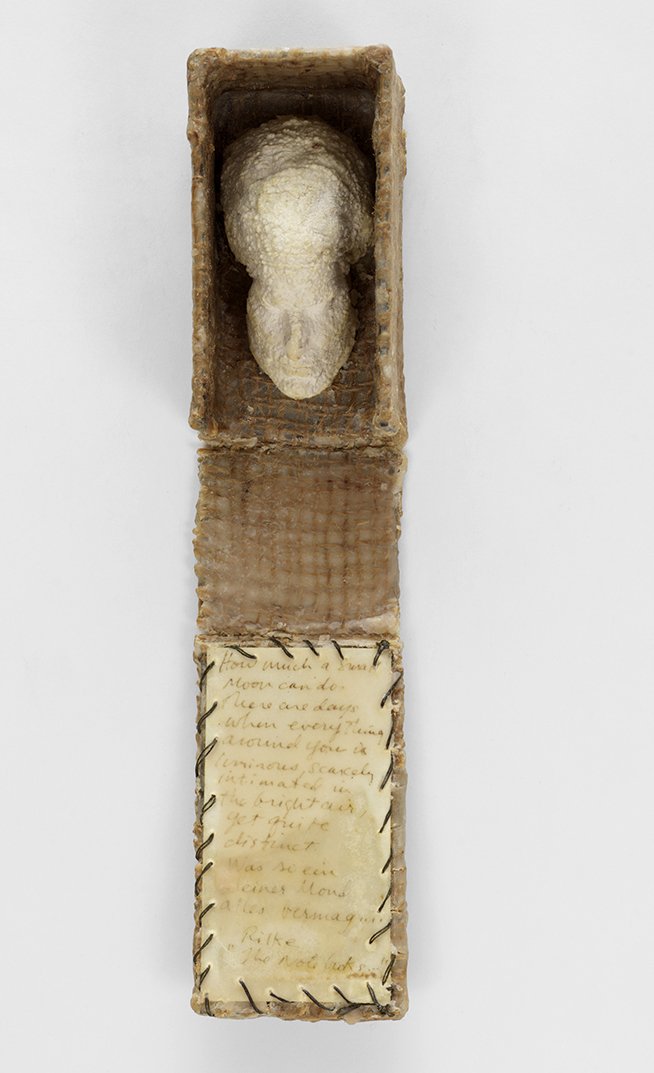 How much a small
Moon can do.
There are days
when everything
around you is
luminous, scarcely
intimated in
the bright air,
yet quite
distinct
Was so ein
kleiner Mond
alles vermag
Rilke
The Notebooks